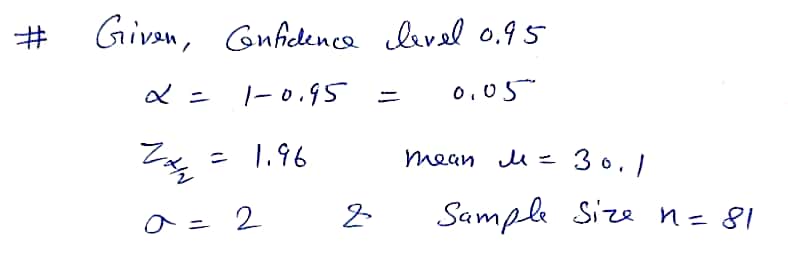 # Given, Confidence level 0.95
α = 1-0.95 = 0.05
Zα/2 = 1.96 mean μ = 30.1
σ = 2 & Sample Size n = 81